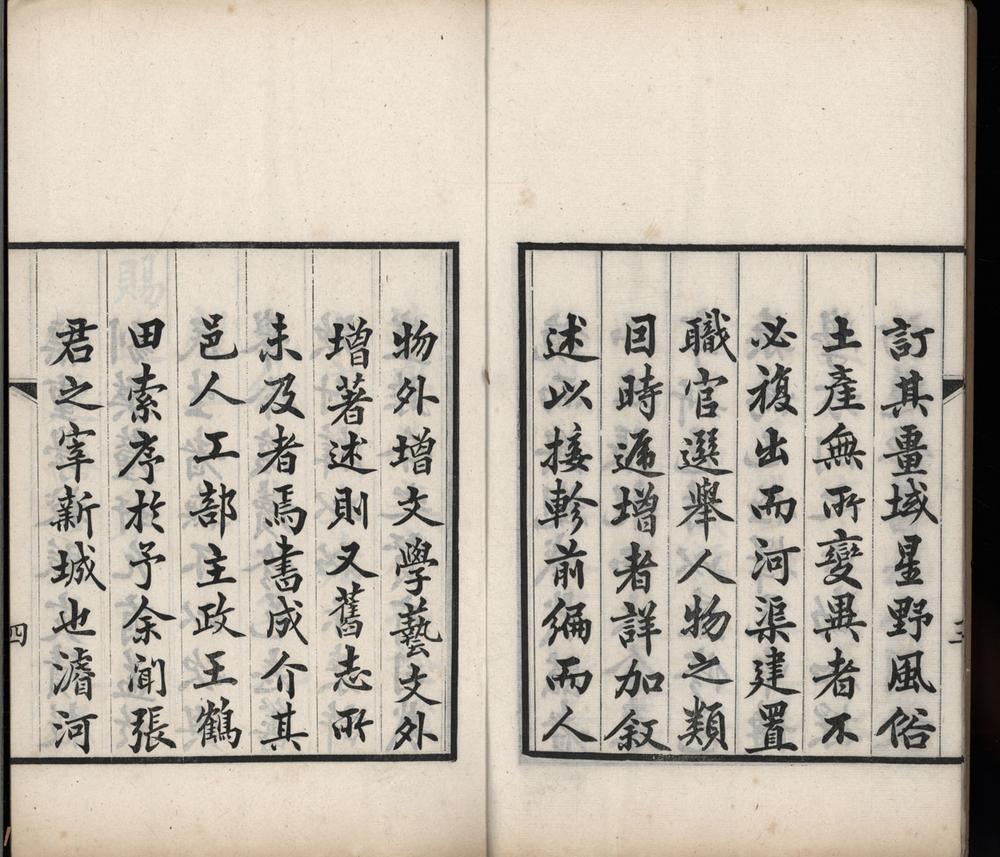 訂其畺域星野風俗
土產無所變異者不
必複出而河渠建置
職官選舉人物之類
因時遞增者詳加敘
述以接軫前編而人
物外增文學藝文外
增著述則又舊志所
未及者焉書成介其
邑人工部主政王鶴
田索序於予余聞張
君之宰新城也濬河
四